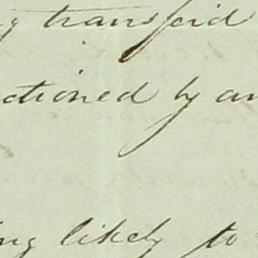 g transferd
ctioned by an
ing likely to